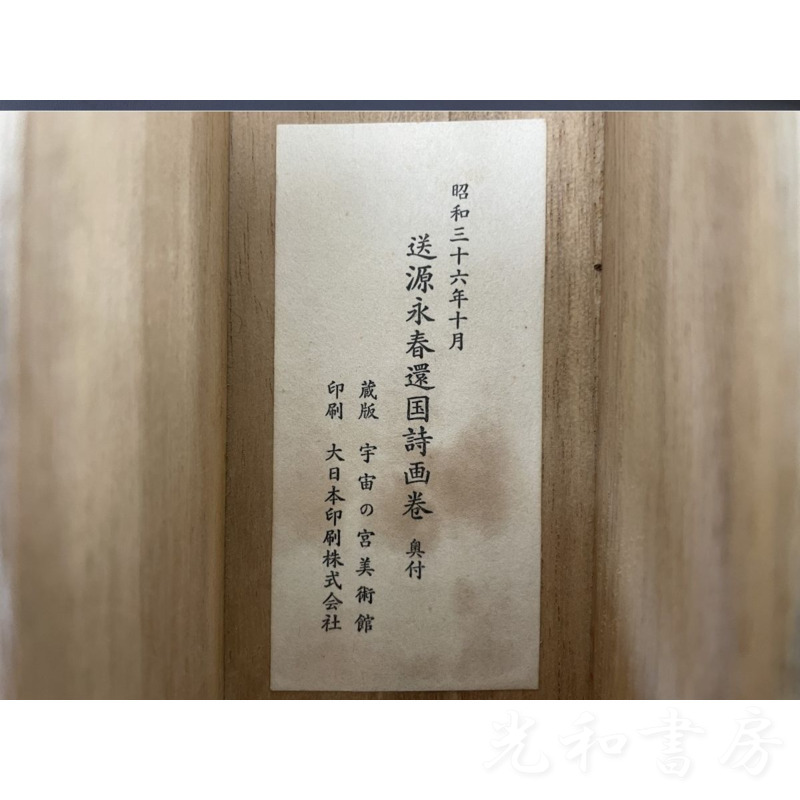 昭和三十六年十月
送源永春還国詩画巻 奥付
蔵版 宇宙の宮美術館
印刷 大日本印刷株式会社
光和書房